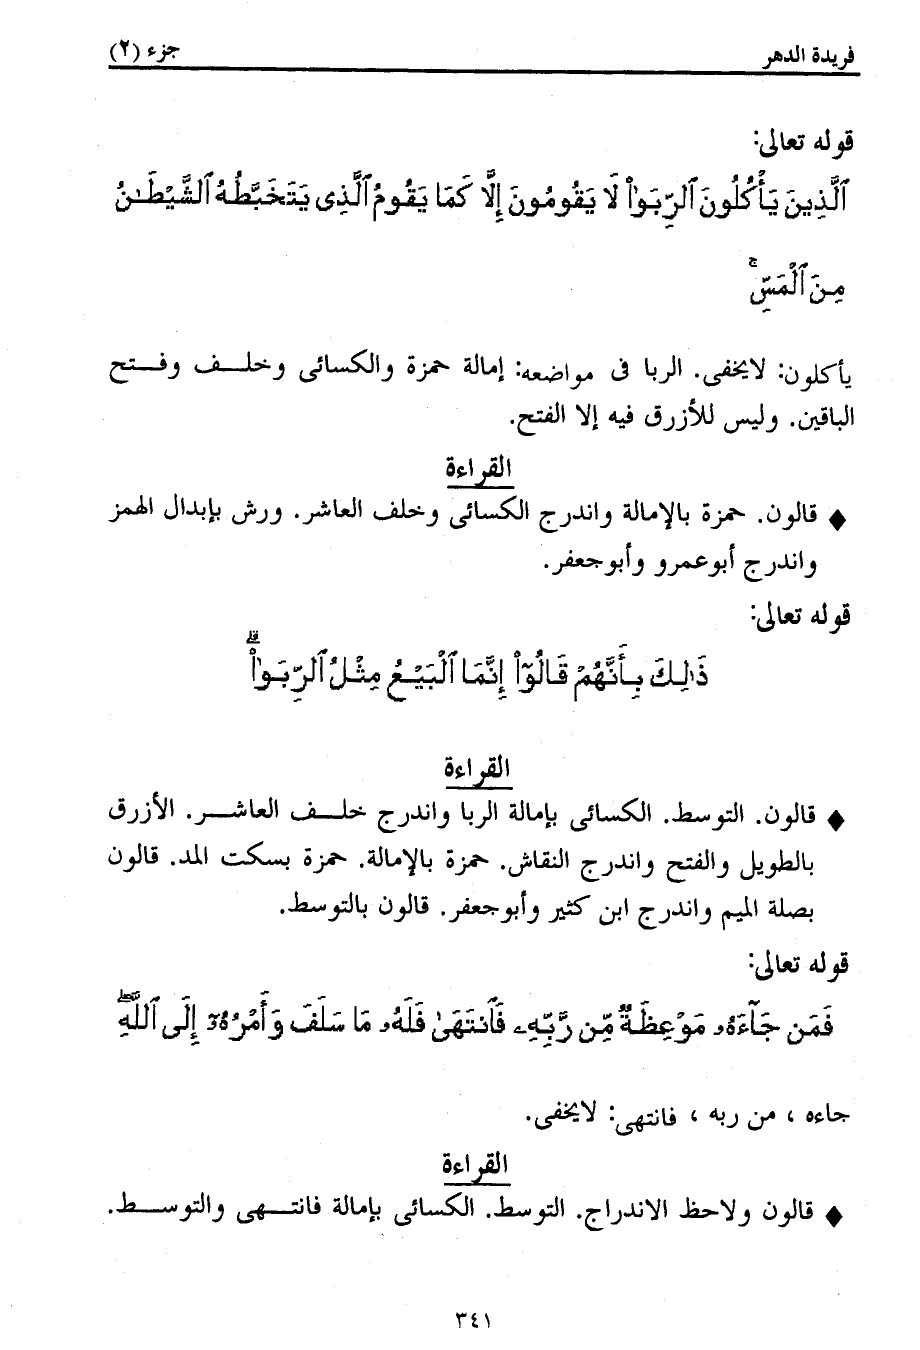 فريدة الدهر جزء (٢)
قوله تعالى:
ٱلَّذِينَ يَأْكُلُونَ ٱلرِّبَوٰا۟ لَا يَقُومُونَ إِلَّا كَمَا يَقُومُ ٱلَّذِى يَتَخَبَّطُهُ ٱلشَّيْطَٰنُ
مِنَ ٱلْمَسِّ ۚ
يأكلون: لايخفى. الربا فى مواضعه: إمالة حمزة والكسائى وخلف وفتح
الباقين. وليس للأزرق فيه إلا الفتح.
القراءة
♦ قالون. حمزة بالإمالة واندرج الكسائى وخلف العاشر. ورش بإبدال الهمز
واندرج أبوعمرو وأبوجعفر.
قوله تعالى:
ذَٰلِكَ بِأَنَّهُمْ قَالُوٓا۟ إِنَّمَا ٱلْبَيْعُ مِثْلُ ٱلرِّبَوٰا۟ ۗ
القراءة
♦ قالون. التوسط. الكسائى بإمالة الربا واندرج خلف العاشر. الأزرق
بالطويل والفتح واندرج النقاش. حمزة بالإمالة. حمزة بسكت المد. قالون
بصلة الميم واندرج ابن كثير وأبوجعفر. قالون بالتوسط.
قوله تعالى:
فَمَن جَآءَهُۥ مَوْعِظَةٌ مِّن رَّبِّهِۦ فَٱنتَهَىٰ فَلَهُۥ مَا سَلَفَ وَأَمْرُهُۥٓ إِلَى ٱللَّهِ ۖ
جاءه ، من ربه ، فانتهى: لايخفى.
القراءة
♦ قالون ولاحظ الاندراج. التوسط. الكسائى بإمالة فانتهى والتوسط.
٣٤١